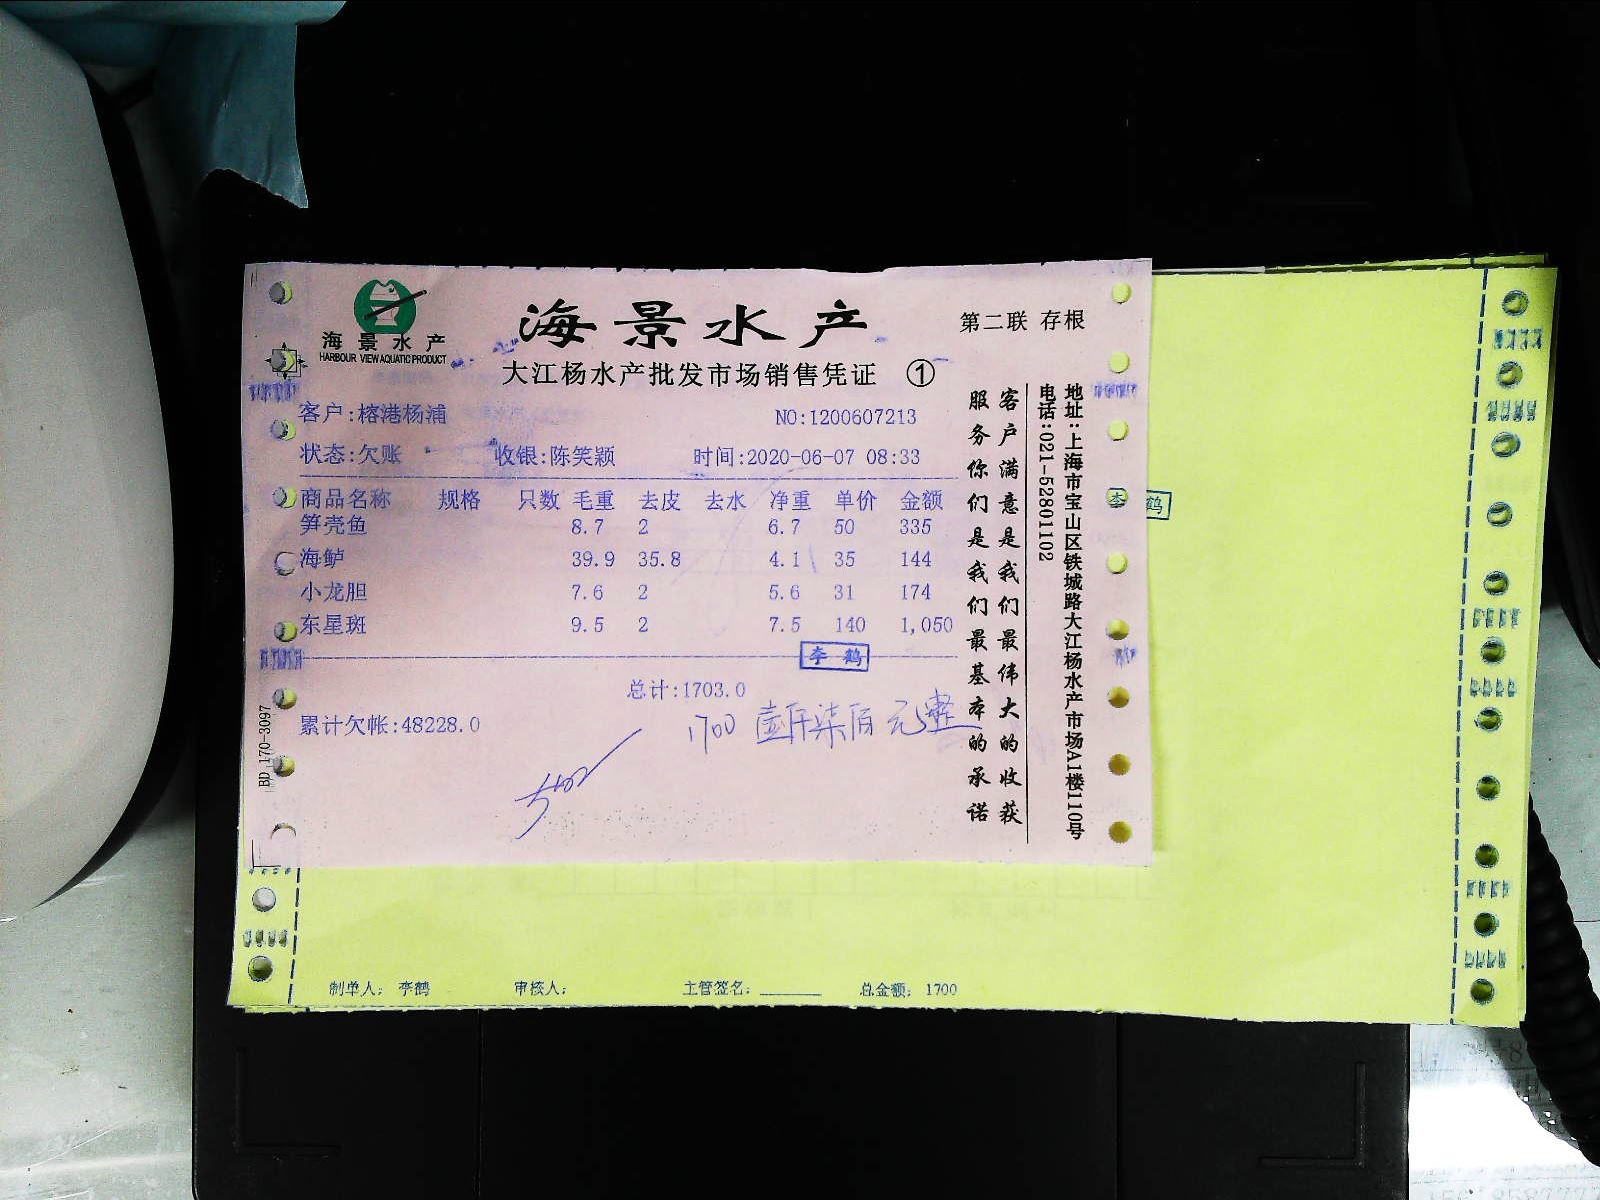 海景水产
HARBOUR VIEW AQUATIC PRODUCT
海景水产
第二联 存根
大江杨水产批发市场销售凭证 ①
客户:榕港杨浦 NO:1200607213
状态:欠账 收银:陈笑颖 时间:2020-06-07 08:33
商品名称 规格 只数 毛重 去皮 去水 净重 单价 金额
笋壳鱼 8.7 2 6.7 50 335
海鲈 39.9 35.8 4.1 35 144
小龙胆 7.6 2 5.6 31 174
东星斑 9.5 2 7.5 140 1,050
李鹤
总计:1703.0
累计欠帐:48228.0
1700 壹仟柒佰元整
BD 170-3097
客户满意是我们最伟大的收获
服务你们是我们最基本的承诺
地址:上海市宝山区铁城路大江杨水产市场A1楼110号
电话:021-52801102
李鹤
制单人: 李鹤 审核人: 主管签名: 总金额: 1700